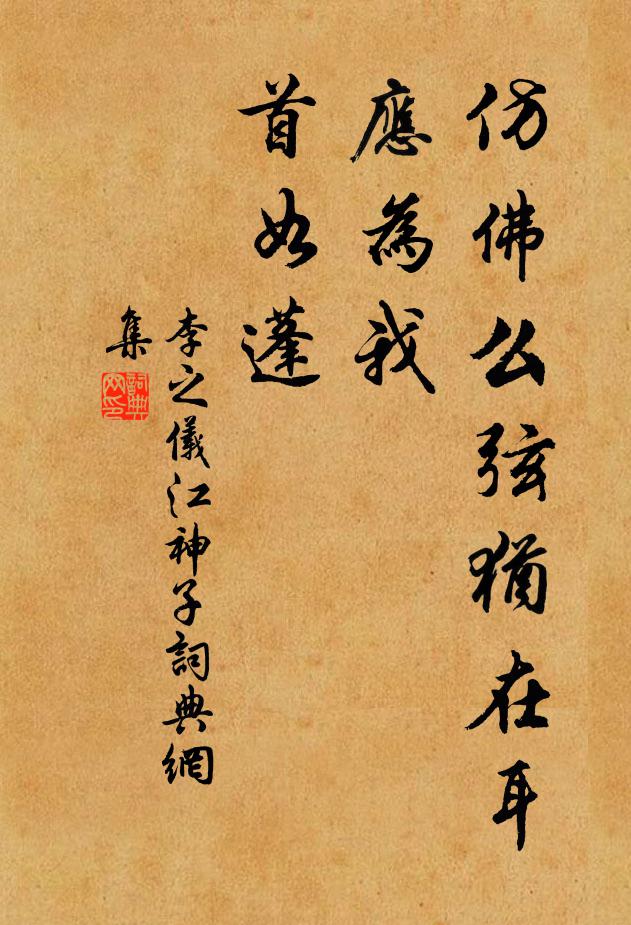 仿佛么弦猶在耳
應為我
首如蓬
李之儀江神子詞典網
集
詞典
网印